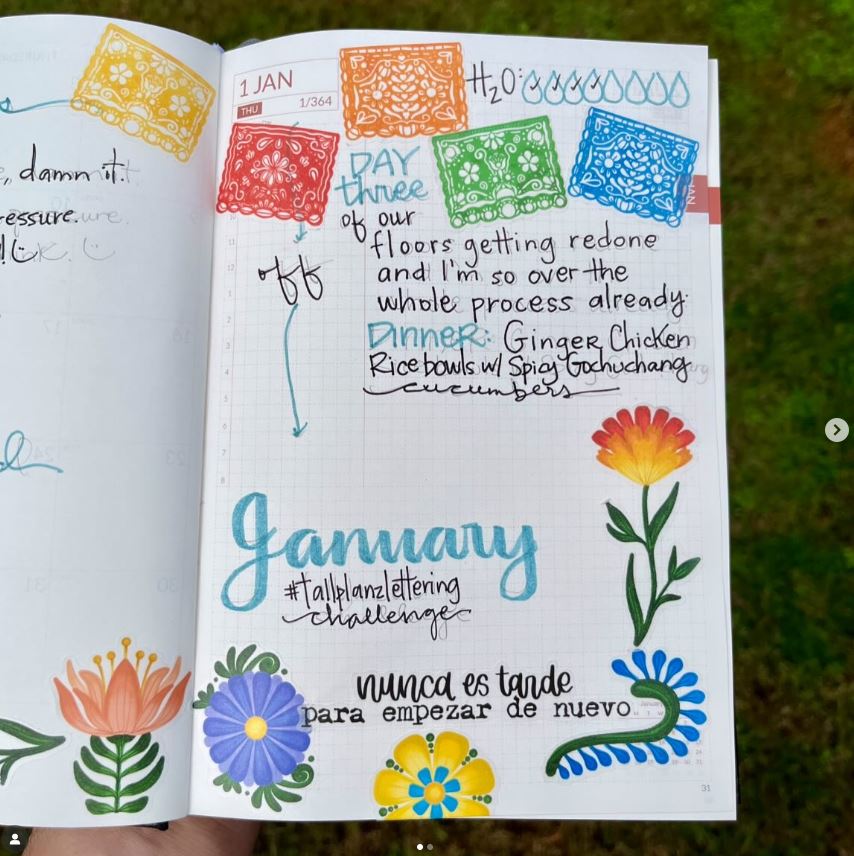 , damn it.
essure.
1 JAN
THU
1/364
H₂O:
JAN
DAY
three
of our
floors getting redone
and I'm so over the
whole process already.
off
Dinner: Ginger Chicken
Rice bowls w/ Spicy Gochuchang
cucumbers
January
#tallplanzlettering
challenge
nunca es tarde
para empezar de nuevo
31